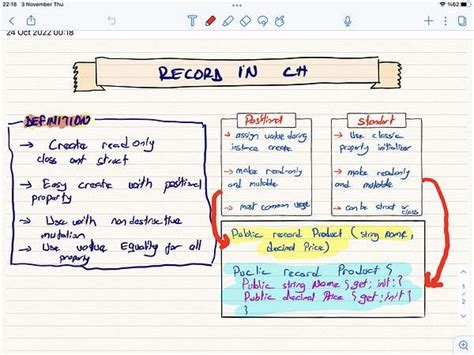 22:18 3 November Thu
%62
24 Oct 2022 00:18
RECORD IN C#
DEFINITION
→ Create read only
class ant struct
→ Easy create with positional
property
→ Use with non destructive
mutation
→ Use value Equality for all
property
Positional
→ assign value doing
instance create
→ make read-only
and mutable
→ most common usage
Standart
→ Use classic
property initializer
→ make readonly
and mutable
→ can be struct or
class
Public record Product (string Name,
decimal Price)
Public record Product {
Public string Name {get; init;}
Public decimal Price {get; init}
}
1
2